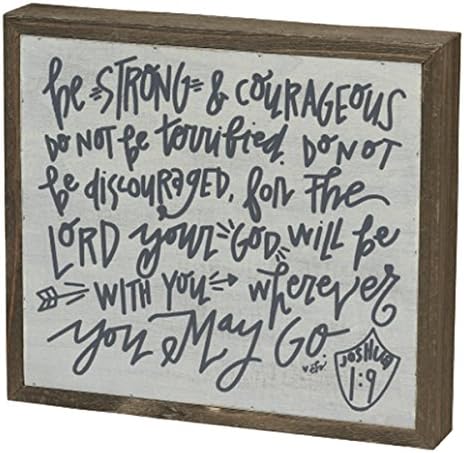 be STRONG & COURAGEOUS
DO NOT be terrified. DO NOT
be discouraged, for The
LORD your GOD will be
WITH YOU wherever
you May Go
JOSHUA
1:9